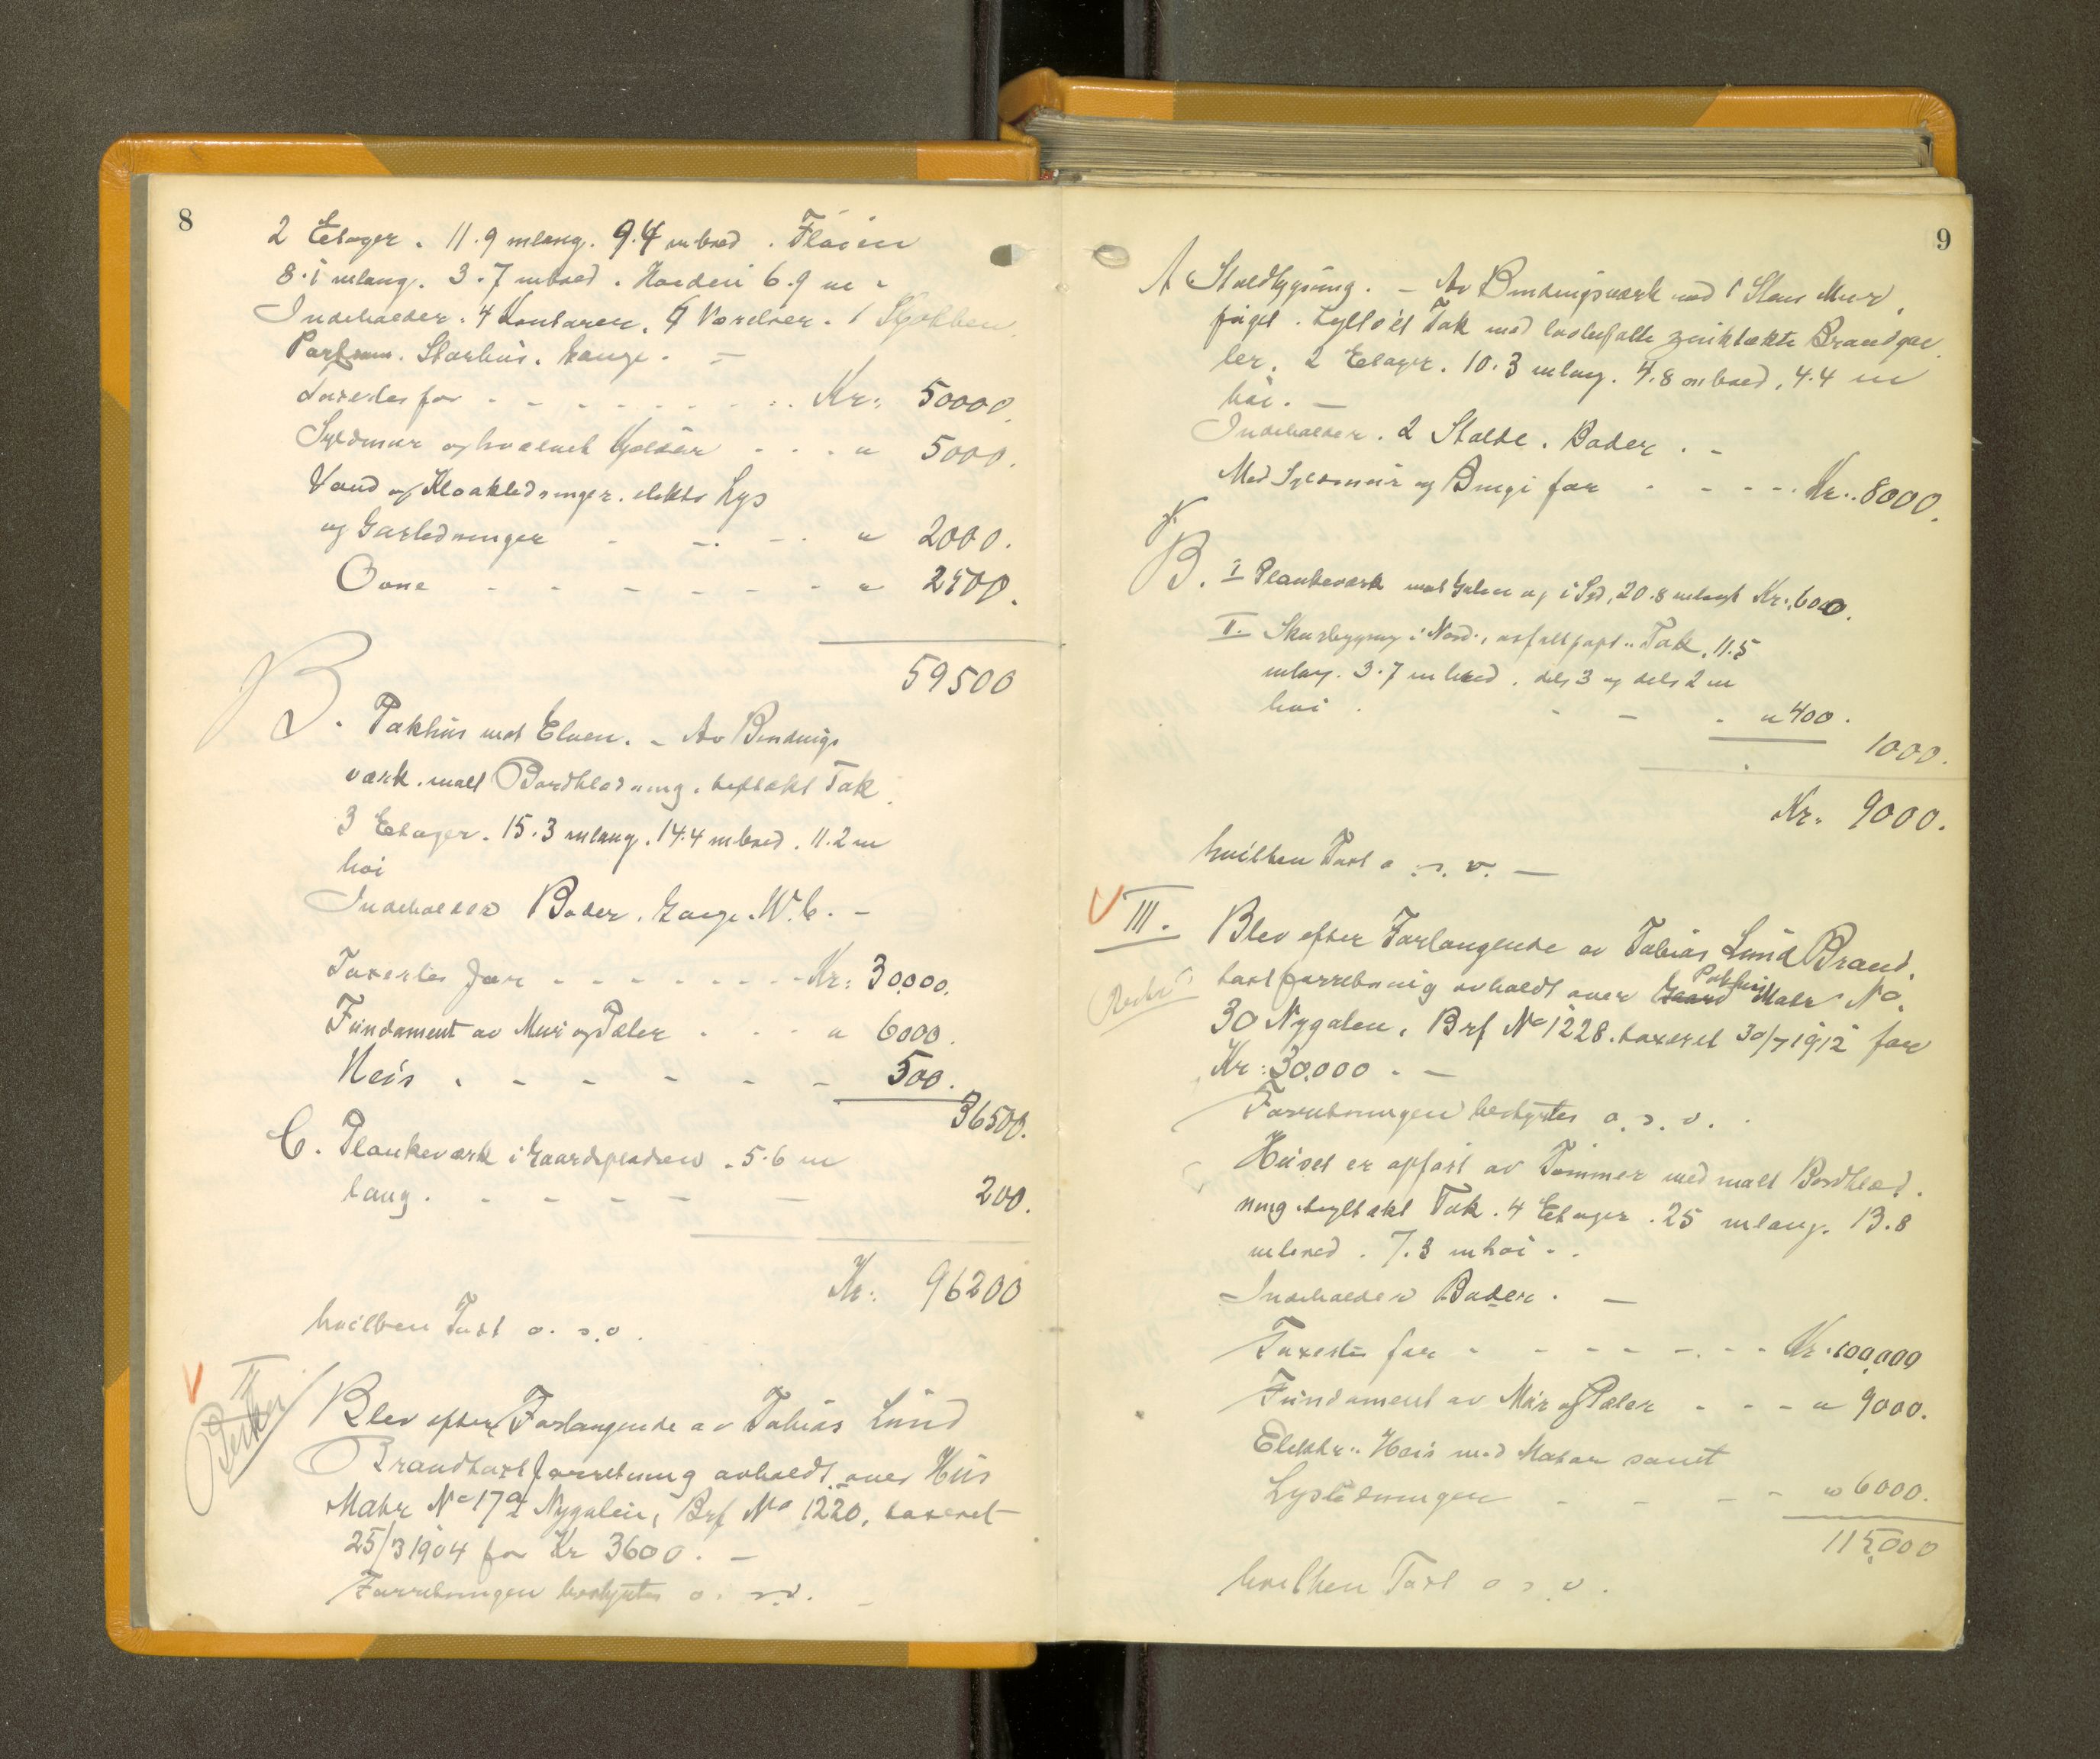 8
2 Etager. 11.9 m lang. 9.4 m bred. Fløien
8.1 m lang. 3.7 m bred. Høiden 6.9 m.
Indeholder. 4 Kontorer. 9 Værelser. 1 Kjøkken
Portrum. Storhus. Gange. —
Taxertes for - - - - - Kr: 50000.
Syldmur og hvælvet Kjelder - - - " 5000.
Vand og Kloakledninger. elektr Lys
og Gasledninger - - - " 2000.
Ovne - - - - - - " 2500.
59500
B. Pakhus mot Elven. - Av Bindings
værk. malt Bordklædning. teltækt Tak.
3 Etager. 15.3 m lang. 14.4 m bred. 11.2 m
høi
Indeholder Boder. Gange. W.C. -
Taxertes for - - - - - Kr: 30.000.
Fundament av Mur og Pæler - - - " 6000.
Heis . - - - - - - 500.
36500.
C. Plankeværk i Gaardspladsen. 5.6 m
lang. - - - - - 200.
Kr. 96200
hvilken Taxt o.s.v.
II
Blev efter Forlangende av Tobias Lund
Brandtaxtforretning avholdt over Hus
Matr No 17a Nygaten, Brf No 1220, taxeret
25/3 1904 for Kr 3600. —
Forretningen bestyrtes o.s.v. —
9
A Staldbygning. - Av Bindingsværk med 1 Stens Mur,
føiget. Tegltækt Tak med zinktækte Brandgav
ler. 2 Etager. 10.3 m lang. 4.8 m bred. 4.4 m
høi. —
Indeholder. 2 Stalde. Boder. -
Med Syldmur og Binge for - - - - Kr. 8000.
B. I Plankeværk mot Gaten og i Syd, 20.8 m langt Kr. 600.
II. Skurbygning i Nord, asfaltpapt. Tak. 11.5
m lang. 3.7 m bred. dels 3 og dels 2 m
høi - - - " 400.
1000.
Kr. 9000.
hvilken Taxt o.s.v. —
III. Blev efter Forlangende av Tobias Lund Brand.
taxtforretning avholdt over Gaard Pakhus Matr No.
30 Nygaten. Brf No 1228. taxeret 30/7 1912 for
Kr: 30.000. - —
Forretningen bestyrtes o.s.v. -
Huset er opført av Tømmer med malt Bordklæd.
ning. tegltækt Tak. 4 Etager. 25 m lang. 13.8
m bred. 7.3 m høi. -
Indeholder Boder. —
Taxertes for - - - - - - Kr. 100.000
Fundament av Mur og Pæler - - - " 9000.
Elektr. Heis med Motor samt
Lysledningen - - - - " 6000.
115.000
hvilken Taxt o.s.v.